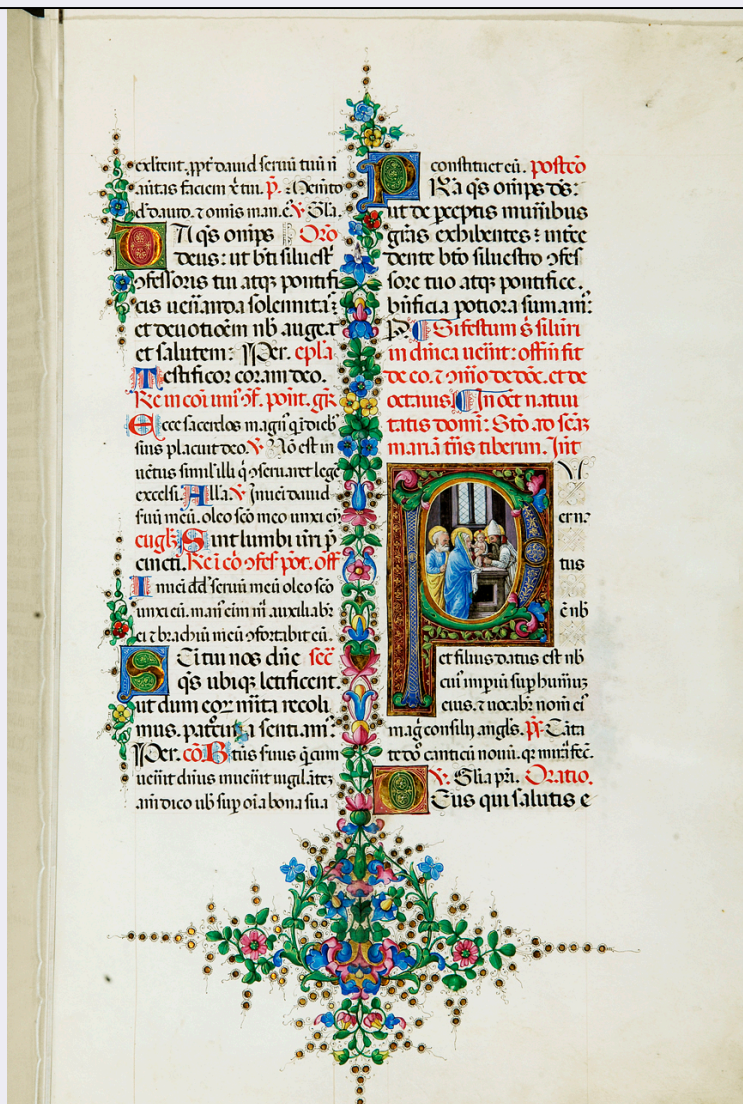 existent. ꝓpt dauid seruū tuū nō
auitas faciem x̄ tui. p̄. Memēto
d. dauid. ⁊ omīs man. e. V. Gla.
DA q̄s omīps Oro
deus: ut bti siluest
ꝯfessoris tui atqꝫ pontifi
cis ueneranda solemnitas:
et deuotioēm nb augeat
et salutem: Per. epla
Testificor coram deo.
Re in cōi uniꝰ ꝯf. pont. gr̄
Ecce sacerdos magnꝰ q̄ i dieb
suis placuit deo. V. Nō est in
uētus simil illi q̄ ꝯseruaret lege
excelsi. Alla. V. Inueni dauid
seruū meū. oleo scō meo unxi eū
eugl. Sint lumbi ur̄i p̄
cincti. Re i cō ꝯfes. pōt. off
Inueni dd seruū meū oleo scō
unxi eū. man̄ eīm m̄ auxiliabr̄
ei ⁊ brachiū meū ꝯfortabit eū.
SCi tui nos dn̄e sec̄
q̄s ubiqꝫ letificent.
ut dum eoꝝ m̄ita recoli
mus. patr̄nia sentiam.
Per. cō. Btus seruus quem
ueniit dn̄us inuenit uigilātez
amē dico ub sup oīa bona sua
constituet eū. postcō
PRa q̄s omīps ds:
ut de pceptis muneribus
grās exhibentes: intce
dente bto siluestro ꝯfes
sore tuo atqꝫ pontifice.
bn̄ficia potiora sumam.
P. Si festum s̄ siluri
in dn̄ica uenit: offm fit
de eo. ⁊ nihō de dōc. et de
octauis. In oct natiui
tatis domi: Stō ad scās
mariā trās tiberim. Int
PV
erna
tus
ē nb
et filius datus est nb
cuiꝰ imperiū sup humeꝝ
eius. ⁊ uocabr̄ nom̄ eiꝰ
mag consilij angls. Pꝰ Cāta
te dō canticū nouū. qꝛ mirā fec.
V. Glia pri. Oratio.
DEus qui salutis e